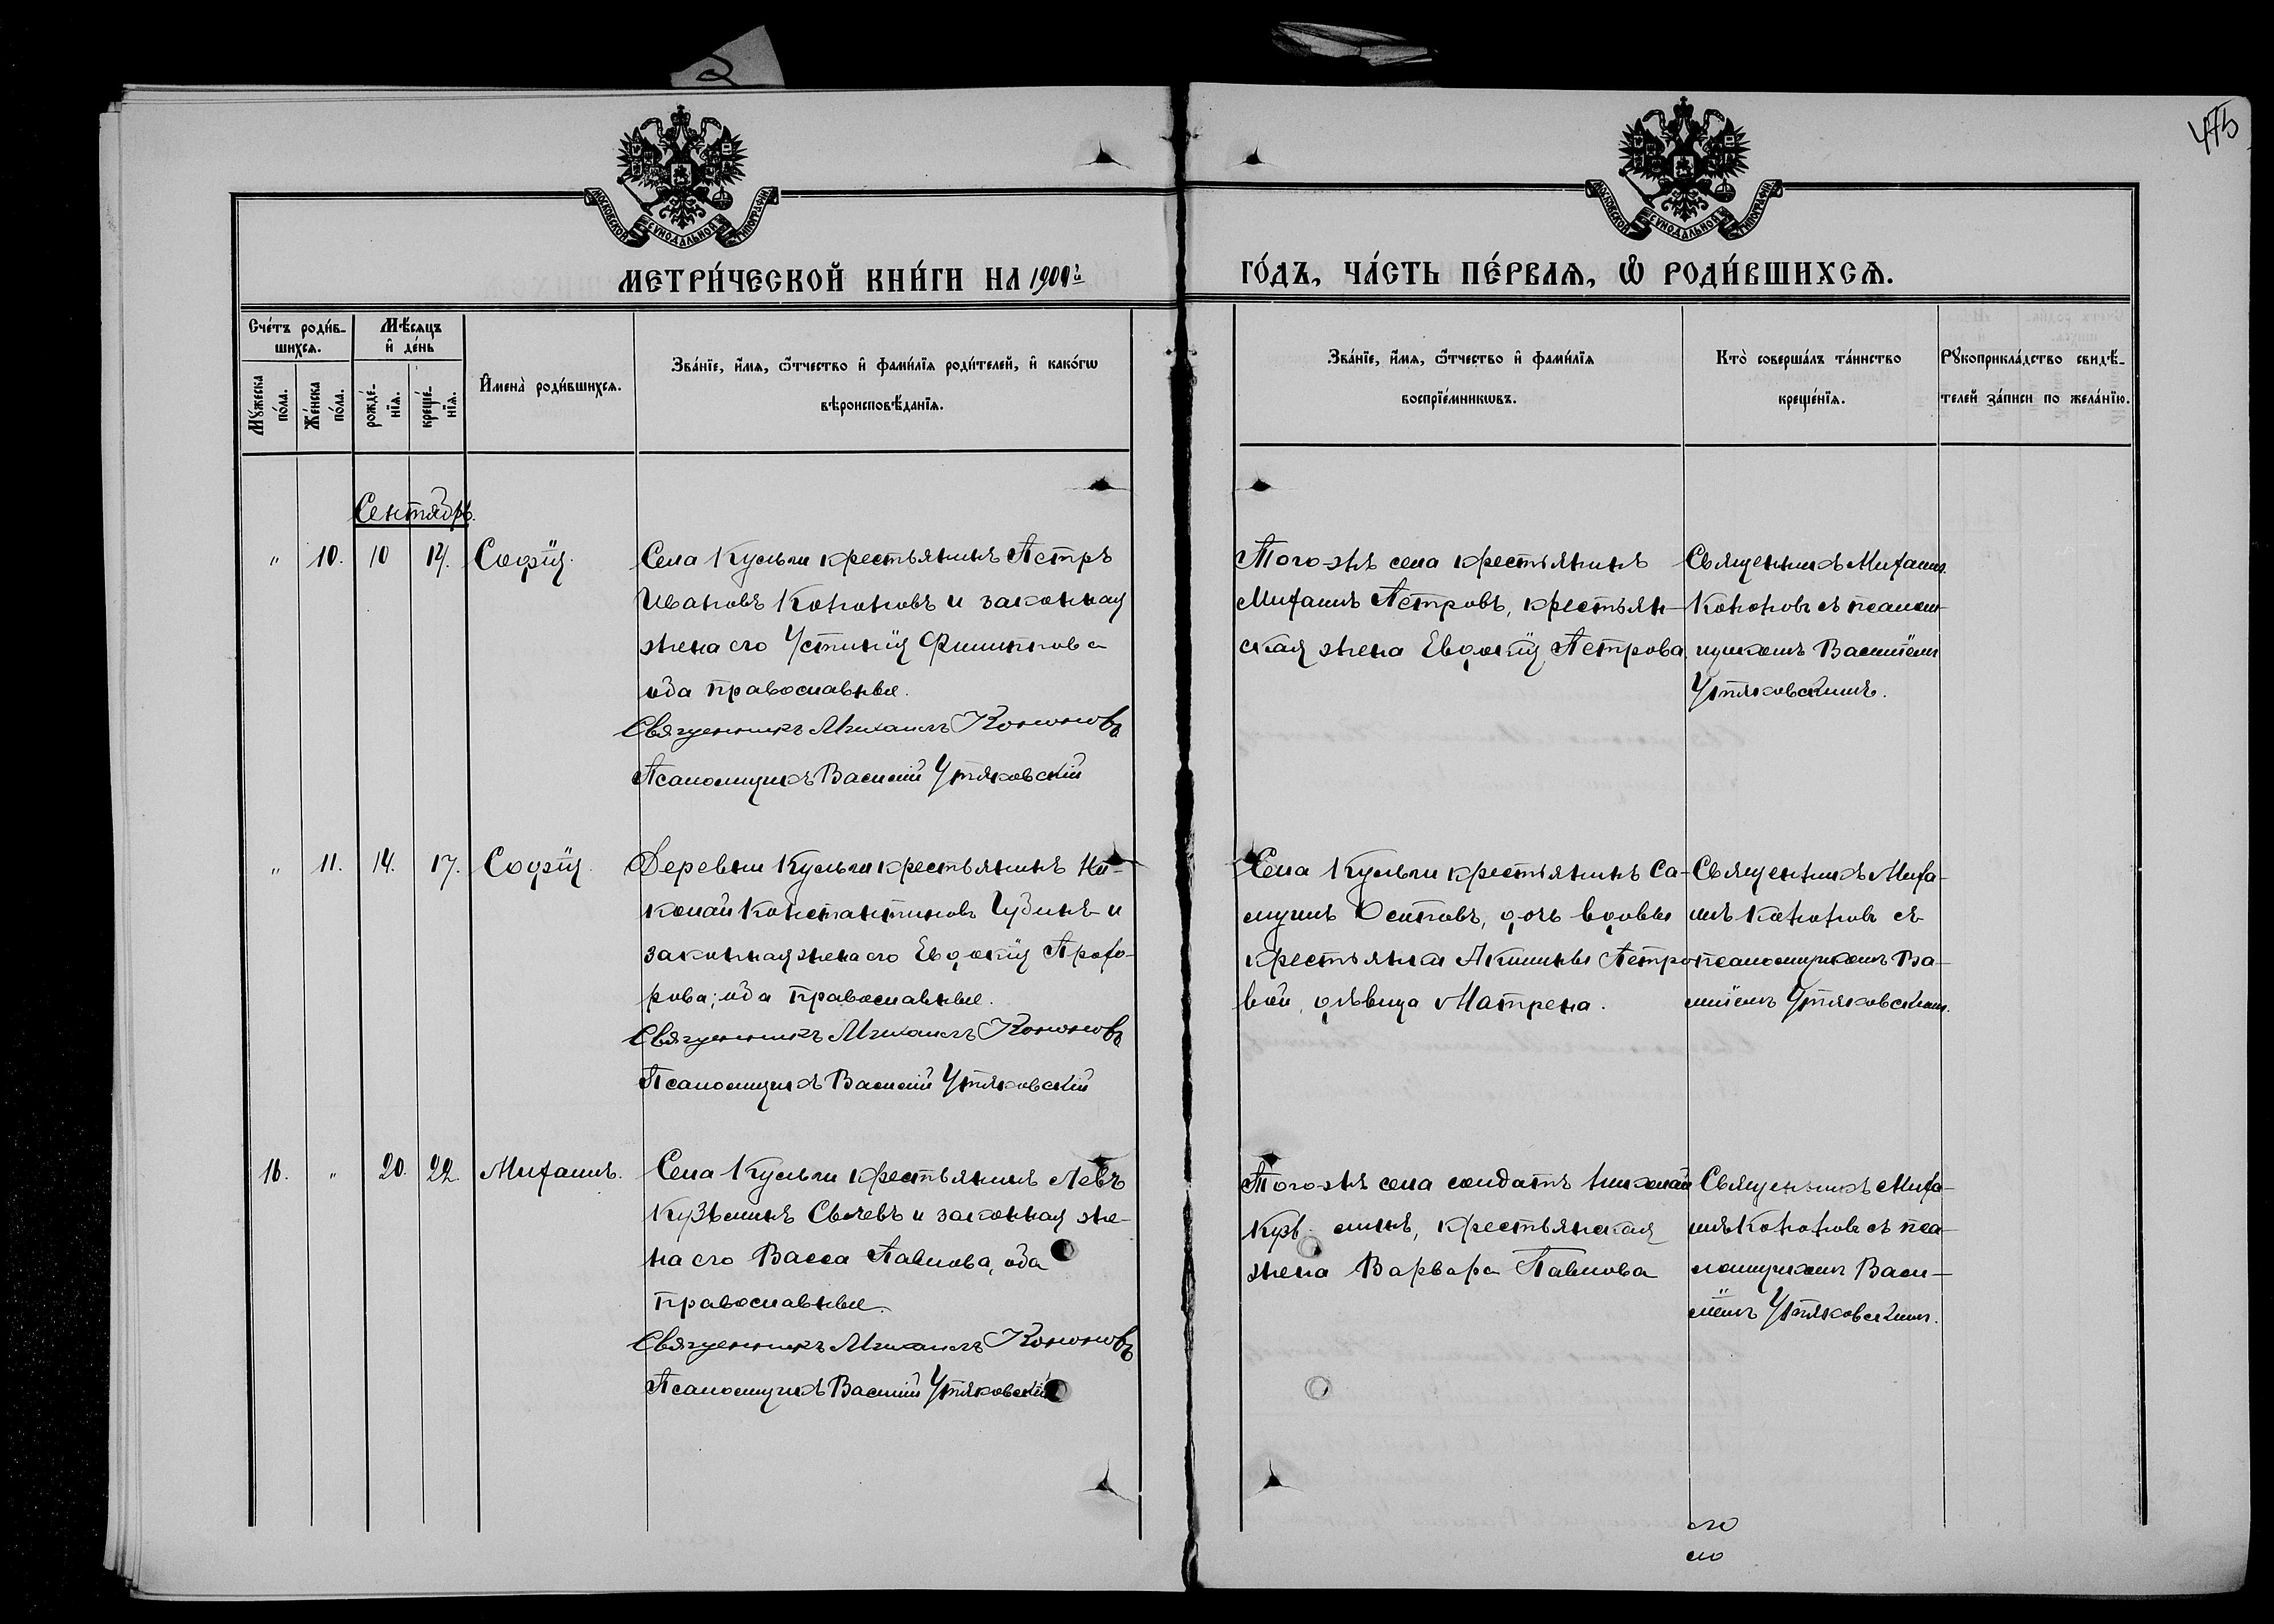 475
МОСКОВСКОЙ СУНОДАЛЬНОЙ ТИПОГРАФІИ
МОСКОВСКОЙ СУНОДАЛЬНОЙ ТИПОГРАФІИ
МЕТРИ́ЧЕСКОЙ КНИ́ГИ НА 1909й
ГО́ДЪ, ЧА́СТЬ ПЕ́РВАѦ, Ѿ РОДИ́ВШИХСѦ.
Сче́тъ роди́в-
шихсѧ.
Мꙋ́жеска
по́ла.
Же́нска
по́ла.
Мѣ́сѧцъ
и҆ де́нь
рожде́-
нїѧ.
креще́-
нїѧ.
И҆мена̀ роди́вшихсѧ.
Зва́нїе, и҆́мѧ, ѻ҆́тчество и҆ фами́лїѧ роди́телей, и҆ како́гѡ
вѣроисповѣ́данїѧ.
Зва́нїе, и҆́мѧ, ѻ҆́тчество и҆ фами́лїѧ
воспрїе́мникѡвъ.
Кто̀ соверша́лъ та́инство
креще́нїѧ.
Рꙋкоприкла́дство свидѣ́-
телей за́писи по жела́нїю.
Сентябрь.
" 10. 10 14. Софія.
Села Кульги крестьянинъ Петръ
Ивановъ Кононовъ и законная
жена его Устинія Филиппова
оба православные.
Священникъ Михаилъ Кононовъ
Псаломщикъ Василій Утяковскій
Того-же села крестьянинъ
Михаилъ Петровъ, крестьян-
ская жена Евдокія Петрова.
Священникъ Михаилъ
Кононовъ съ псалом-
щикомъ Василіемъ
Утяковскимъ.
" 11. 14. 17. Софія.
Деревни Кульги крестьянинъ Ни-
колай Константиновъ и
законная жена его Евдокія Прохо-
рова; оба православные.
Священникъ Михаилъ Кононовъ
Псаломщикъ Василій Утяковскій
Села Кульги крестьянинъ Са-
муилъ Осиповъ, дочь вдовы
крестьянки Акилины Петро-
вой, дѣвица Матрена.
Священникъ Миха-
илъ Кононовъ съ
псаломщикомъ Ва-
силіемъ Утяковскимъ.
16. " 20. 22. Михаилъ.
Села Кульги крестьянинъ Левъ
Кузьминъ и законная же-
на его Васса Павлова, оба
православные.
Священникъ Михаилъ Кононовъ
Псаломщикъ Василій Утяковскій
Того-же села солдатъ Николай
Кузьминъ, крестьянская
жена Варвара Павлова
Священникъ Миха-
илъ Кононовъ съ пса-
ломщикомъ Васи-
ліемъ Утяковскимъ.